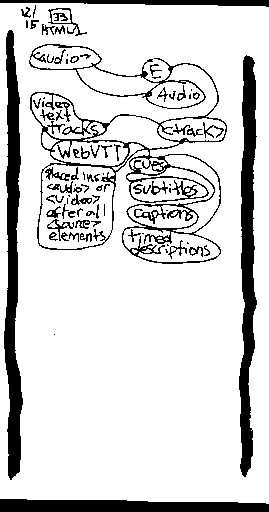 12/
15
33
HTML1
<audio>
E
Audio
Video
text
tracks
<track>
WebVTT
cues
Placed inside
<audio> or
<video>
after all
<source>
elements
subtitles
captions
timed
descriptions